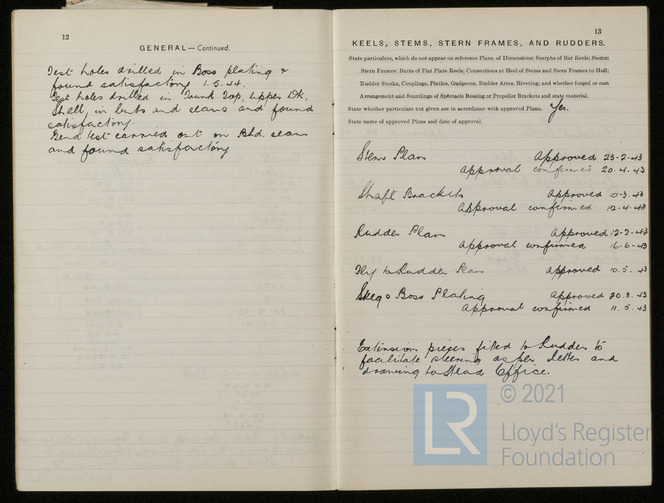 12
GENERAL—Continued.
Test holes drilled in Boss plating &
found satisfactory 1.5.44.
Test holes drilled in Tank Top, Upper Dk,
Shell, in butts and seams and found
satisfactory.
Bend test carried out on seam
and found satisfactory
13
KEELS, STEMS, STERN FRAMES, AND RUDDERS.
State particulars, which do not appear on reference Plans, of Dimensions; Scarphs of Bar Keels; Stems;
Stern Frames; Butts of Flat Plate Keels; Connections at Heel of Stems and Stern Frames to Hull;
Rudder Stocks, Couplings, Pintles, Gudgeons, Rudder Arms, Riveting; and whether forged or cast
Arrangement and Scantlings of Spectacle Bossing or Propeller Brackets and state material.
State whether particulars not given are in accordance with approved Plans. Yes.
State name of approved Plans and date of approval.
Stem Plan Approved 23-2-43
approval confirmed 20.4.43
Shaft Brackets Approved 10-3.43
Approval confirmed 12-4-43
Rudder Plan Approved 12-2-43
Approval confirmed 16-6-43
to Rudder Plan approved 10.5.43
Skeg & Boss Plating approved 20.3.43
Approval confirmed 11.5.43
Extension pieces fitted to Rudder to
facilitate steering as per letter and
drawing to Head Office.
© 2021
LR
Lloyd's Register
Foundation